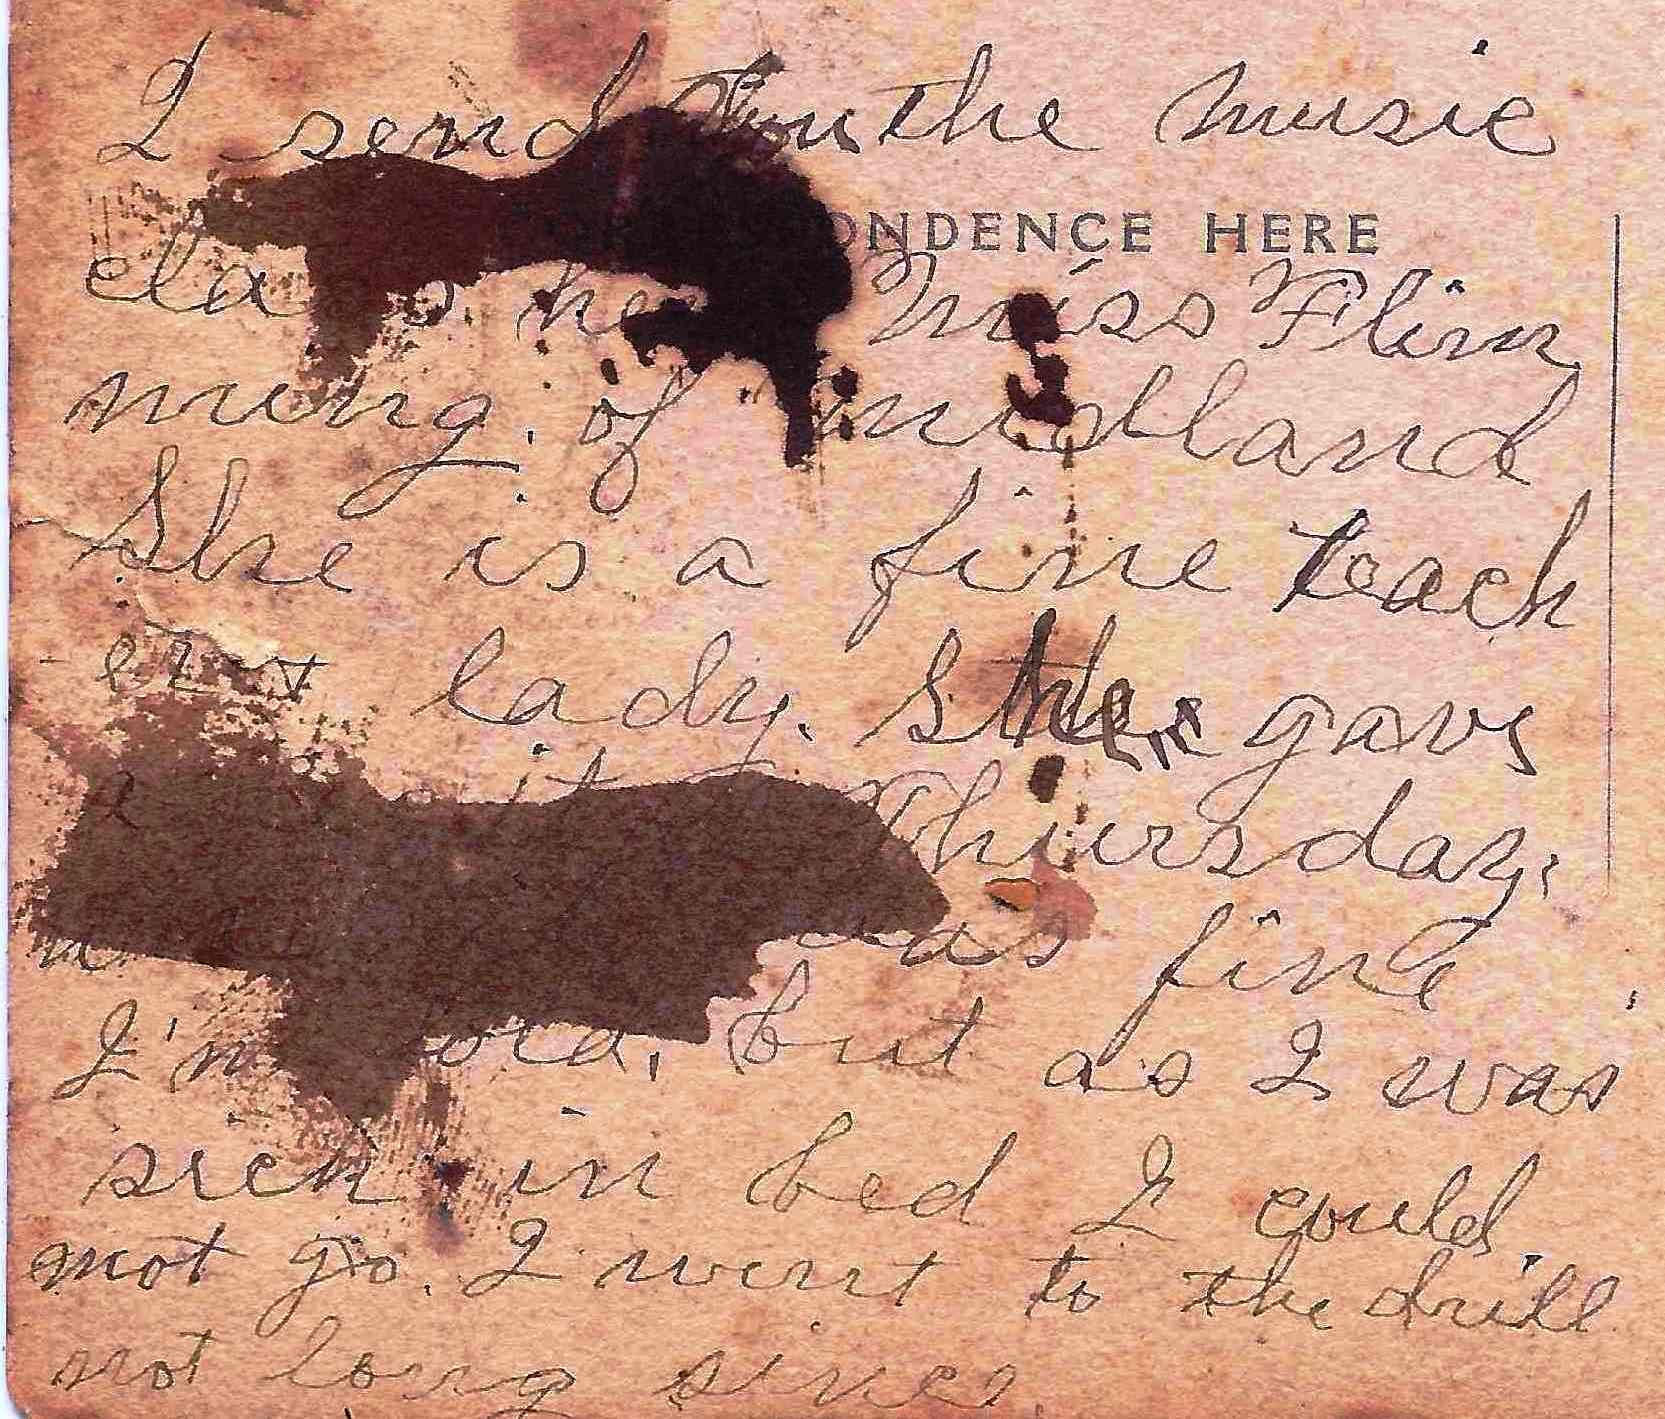 I send you the music
ONDENCE HERE
Miss Flem
ming. of midland
She is a fine teach
er & lady. She gave
Thursday.
was fine
I'm but as I was
sick in bed I could
not go. I went to the drill
not long since